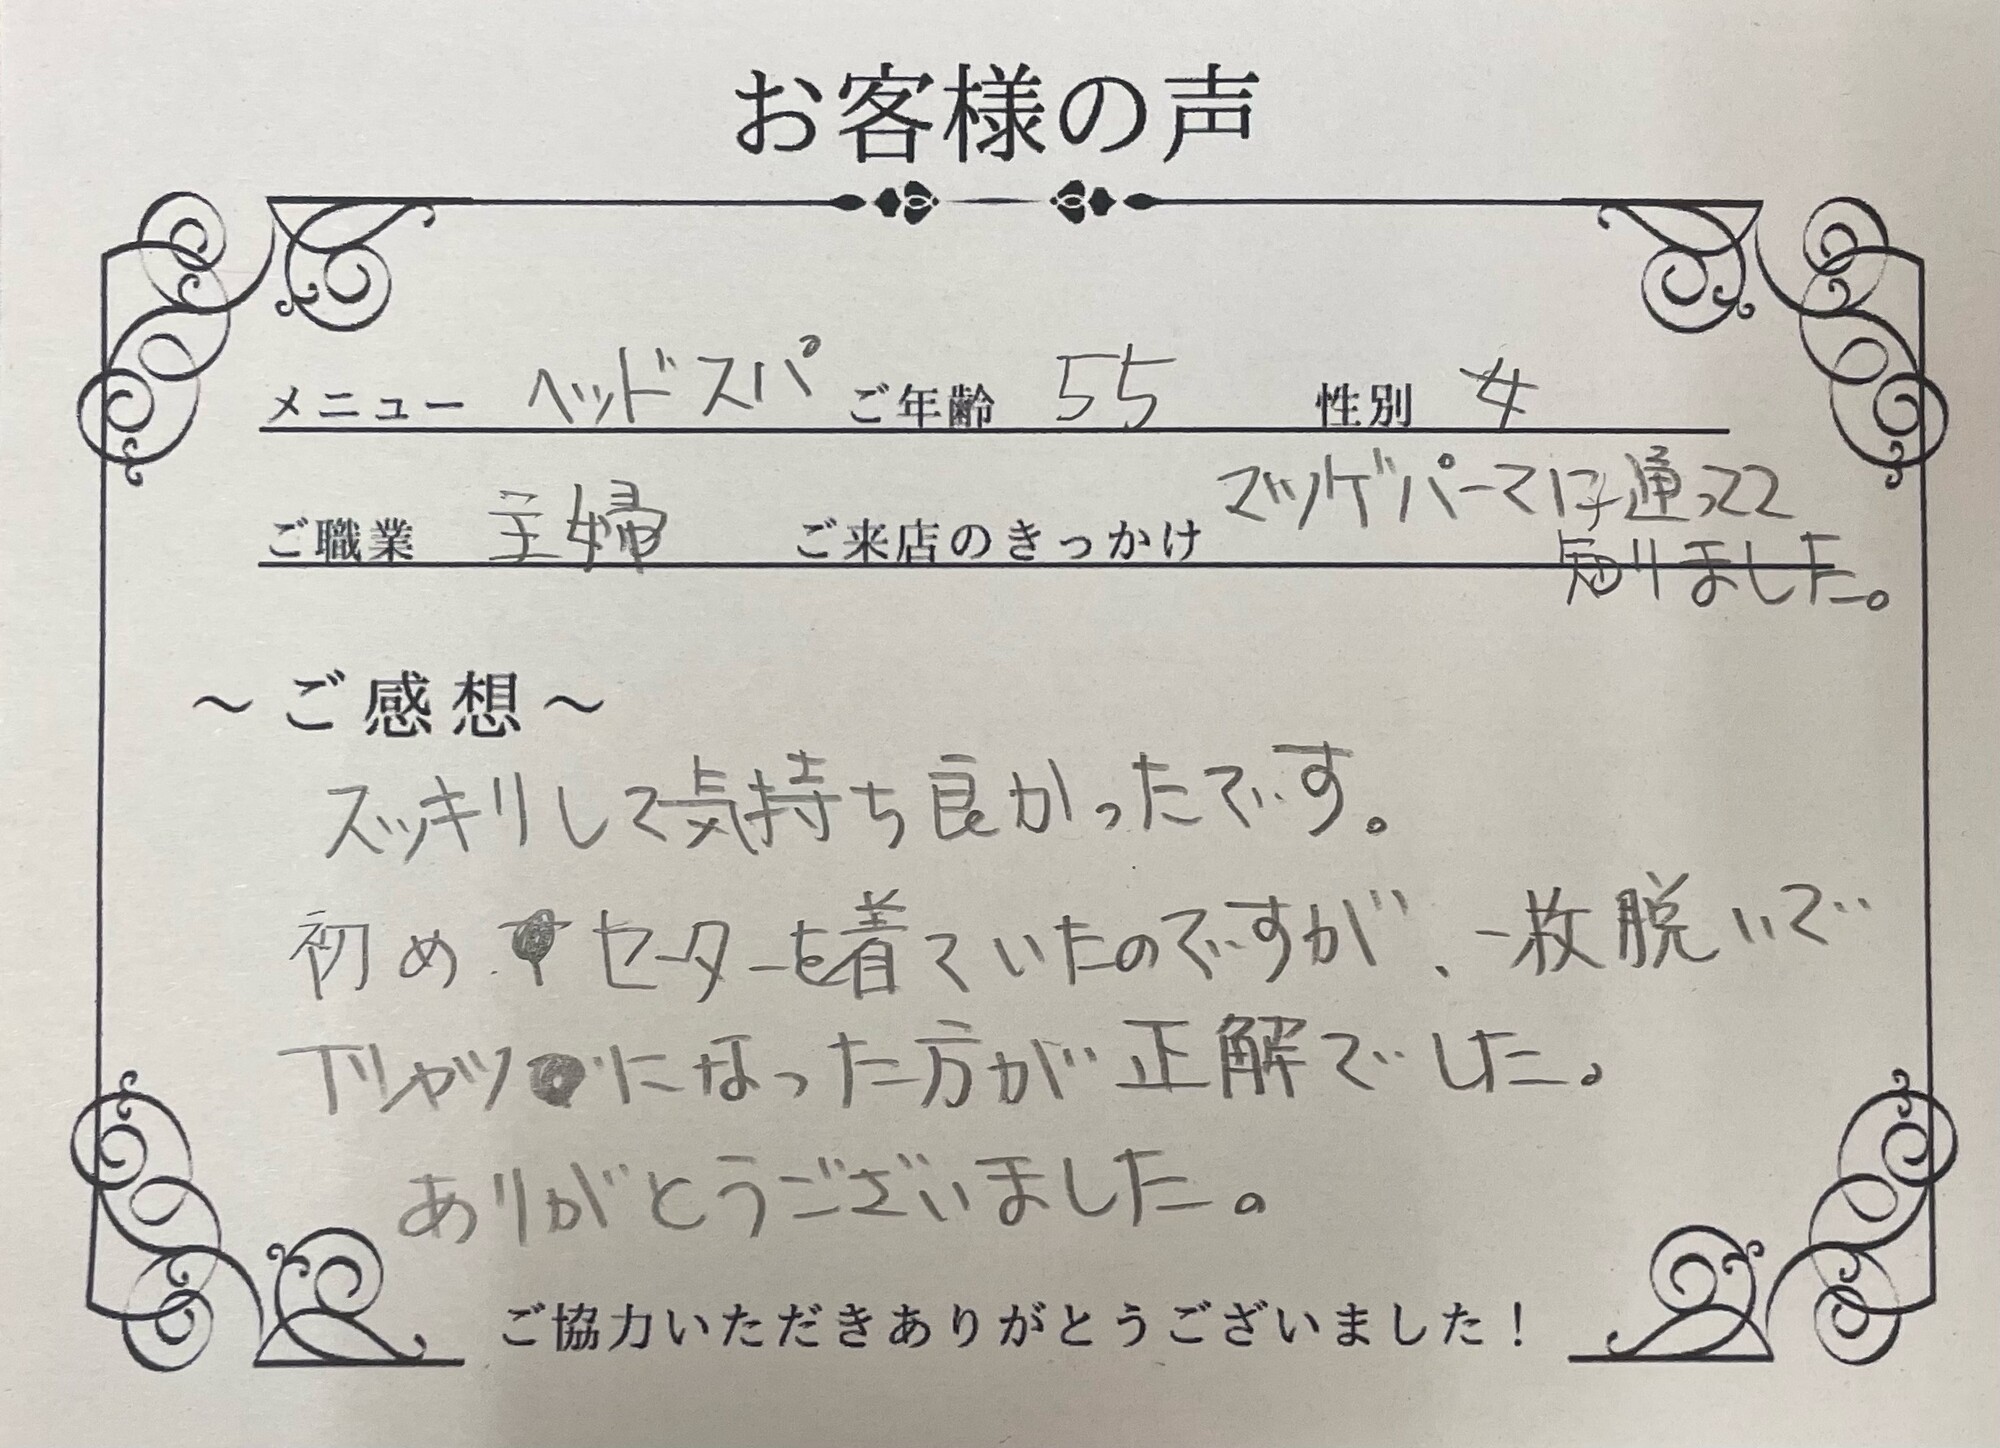 お客様の声
メニュー ヘッドスパ ご年齢 55 性別 女
ご職業 主婦 ご来店のきっかけ マツゲパーマに通ってて
知りました。
～ご感想～
スッキリして気持ち良かったです。
初め セーターを着ていたのですが、一枚脱いで
Tシャツになった方が正解でした。
ありがとうございました。
ご協力いただきありがとうございました！